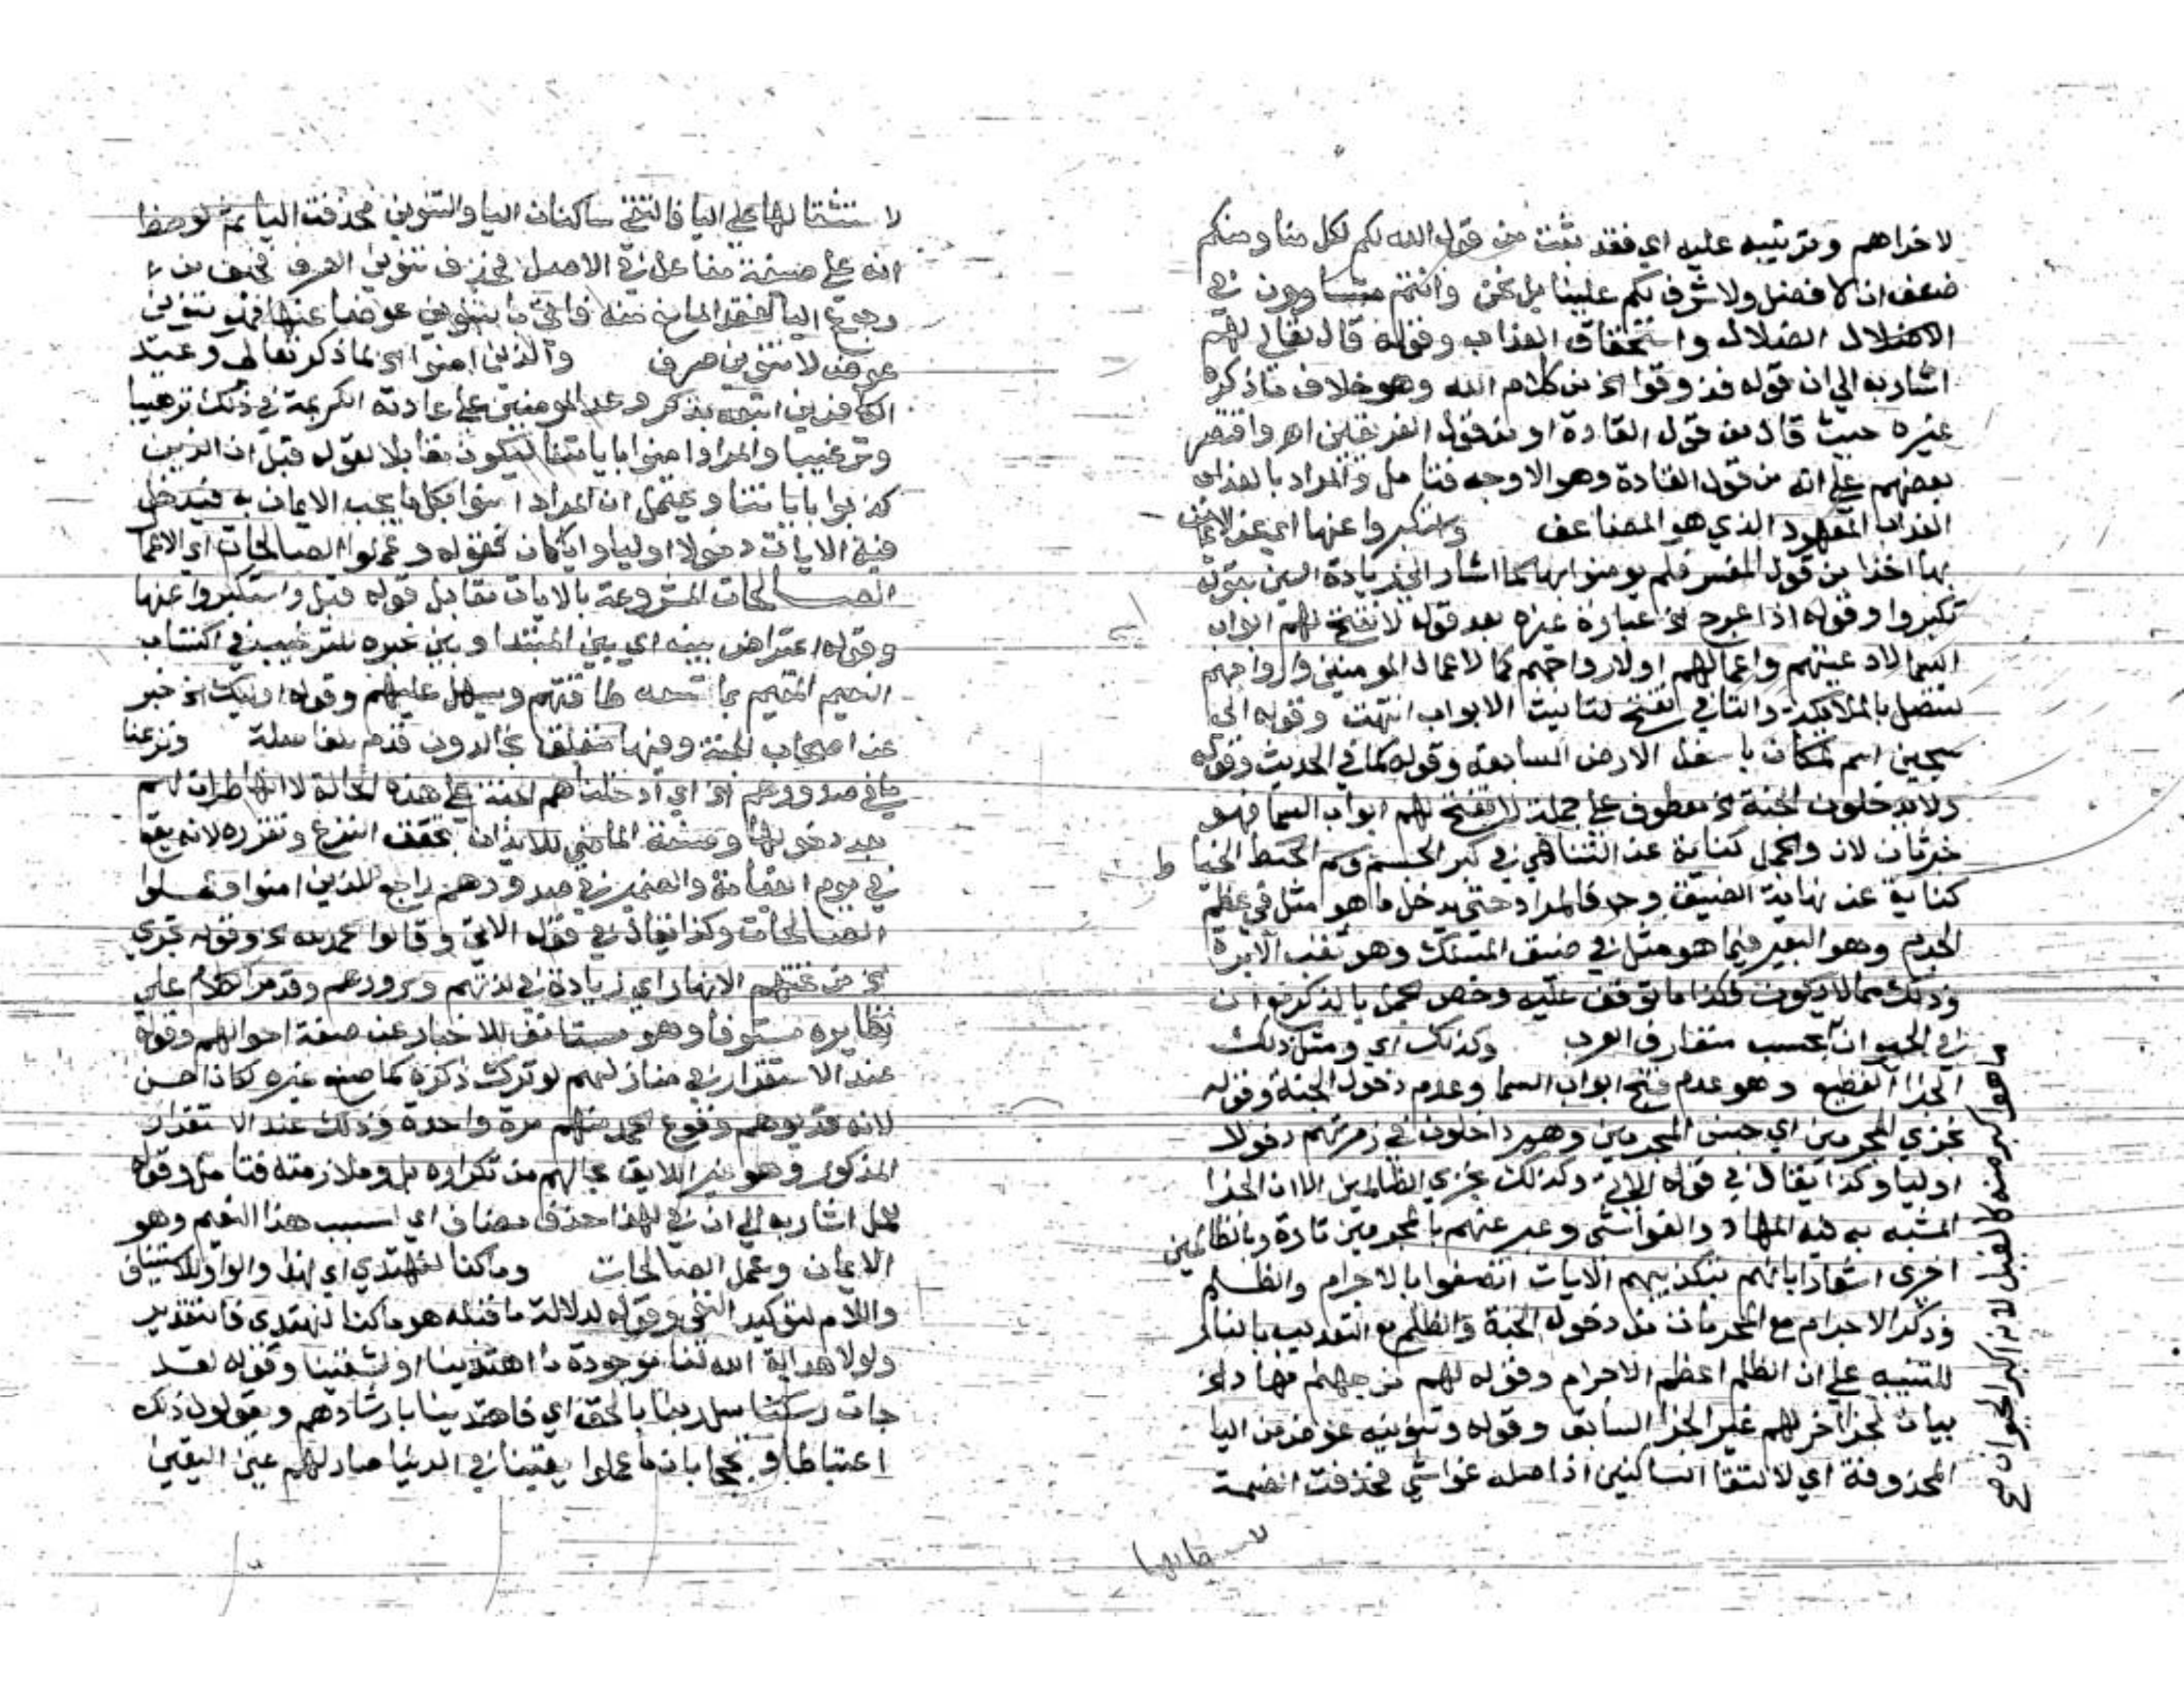 لاخراهم وترتيبه عليه اي فقد ثبت من قول الله لكم لكل منا ومنكم
ضعف ان لا فضل ولا شرف لكم علينا بل نحن وانتم متساوون في
الضلال واستحقاق العذاب وقوله قال تعالي لهم
اشار به الي ان قوله فذوقوا الخ من كلام الله وهو خلاف ما ذكره
غيره حيث قال من قول القادة او من قول الفريقين اهـ واقتصر
بعضهم علي انه من قول القادة وهو الاوجه فتامل والمراد بالعذاب
العذاب المعهود الذي هو المضاعف واستكبروا عنها اي عن الايمان
بها اخذا من قول المفسر فلم يومنوا بها كما اشار الي زيادة السين بقوله
تكبروا وقوله اذا عرج الخ عبارة غيره بعد قوله لا تفتح لهم ابواب
السما لادعيتهم واعمالهم او لارواحهم كما لاعمال المومنين وارواحهم
لتتصل بالملايكة والتا في تفتح لتانيث الابواب انتهت وقوله الي
سجين اسم لمكان باسفل الارض السابعة وقوله كما في الحديث وقوله
ولا يدخلون الجنة الخ معطوف علي جملة لا تفتح لهم ابواب السما فهو
خبر ثان لان والجمل كناية عن التناهي في كبر الجسم وسم الخيط الخيا ط
كناية عن نهاية الضيق وح فالمراد حتي يدخل ما هو مثل في عظم
الجرم وهو البعير فيما هو مثل في ضيق المسلك وهو ثقب الابرة
وذلك مما لا يكون فكذا ما توقف عليه وخص الجمل بالذكر مع ان
في الحيوان بحسب متعارف العرب وكذلك اي ومثل ذلك
الجزا الفظيع وهو عدم فتح ابواب السما وعدم دخول الجنة وقوله
نجزي المجرمين اي جنس المجرمين وهم داخلون في زمرتهم دخولا
اوليا وكذا يقال في قوله الاتي وكذلك نجزي الظالمين الا ان الجزا
المشبه به فيه المهاد والغواشي وعبر عنهم بالمجرمين تارة وبالظالمين
اخري اشعارا بانهم بتكذيبهم الايات اتصفوا بالاجرام والظلم
وذكر الاجرام مع الحرمان من دخول الجنة والظلم مع التعذيب بالنار
للتنبيه علي ان الظلم اعظم الاجرام وقوله لهم من جهنم مهاد الخ
بيان لجزا اخر لهم غير الجزا السابق وقوله وتنوينه عوض من اليا
المحذوفة اي لالتقا الساكنين اذ اصله غواشي فحذفت الضمة
ما هو اكبر منه كالفيل لانه اكبر الحيوان صح
لاستثقالها علي اليا فالتقي ساكنان اليا والتنوين فحذفت اليا ثم لوحظ
انه علي صيغة مفاعل في الاصل فحذف تنوين الصرف فخيف من
رجوع اليا فاتي بالتنوين عوضا عنها فهو تنوين
عوض لا تنوين صرف والذين امنوا الخ لما ذكر تعالي وعيد
الكافرين اتبعه بذكر وعد المومنين علي عادته الكريمة في ذلك ترهيبا
وترغيبا والمراد امنوا باياتنا ليكون مقابلا لقوله قبل ان الذين
كذبوا باياتنا ويحتمل ان المراد امنوا بكل ما يجب الايمان به فيدخل
فيه الايات دخولا اوليا وقوله وعملوا الصالحات اي الاعما
الصالحات المشروعة بالايات مقابل قوله قبل واستكبروا عنها
وقوله اعتراض بينه اي بين المبتدا وبين خبره للترغيب في اكتساب
النعيم المقيم بما تسعه طاقتهم ويسهل عليهم وقوله اوليك الخ خبر
عنه اصحاب الجنة وفيها متعلق بخالدون قدم للفاصلة ونزعنا
ما في صدورهم الخ اي ادخلناهم الجنة علي هذه الحالة لا انها طرات لهم
بعد دخولها وصيغة الماضي للايذان بتحقق النزع وتقرره لانه يقع
في يوم القيامة والضمير في صدورهم راجع للذين امنوا وعملوا
الصالحات وكذا يقال في قوله الاتي وقالوا الحمد لله الخ وقوله تجري
الخ من تحتهم الانهار اي زيادة في لذتهم وسرورهم وقد مر الكلام علي
نظايره مستوفا وهو مستانف للاخبار عن صفة احوالهم وقوله
عند الاستقرار في منازلهم لو ترك ذكره كما صنع غيره لكان احسن
لانه قد يوهم وقوع الحمد منهم مرة واحدة وذلك عند الاستقرار
المذكور وهو غير اللايق بحالهم من تكراره بل وملازمته فتامل وقوله
لعمل اشار به الي ان في لهذا حذف مضاف اي لسبب هذا النعيم وهو
الايمان وعمل الصالحات وما كنا لنهتدي اي لهذا والواو للاستيناف
واللام لتوكيد النفي وقوله لدلالة ما قبله هو ما كنا لنهتدي فالتقدير
ولولا هداية الله لنا موجودة ما اهتدينا او لشقينا وقوله لقد
جات رسل ربنا بالحق اي فاهتدينا بارشادهم ويقولون ذلك
اغتباطا وتبجحا بان ما عملوا يقينا في الدنيا صار لهم عين اليقين